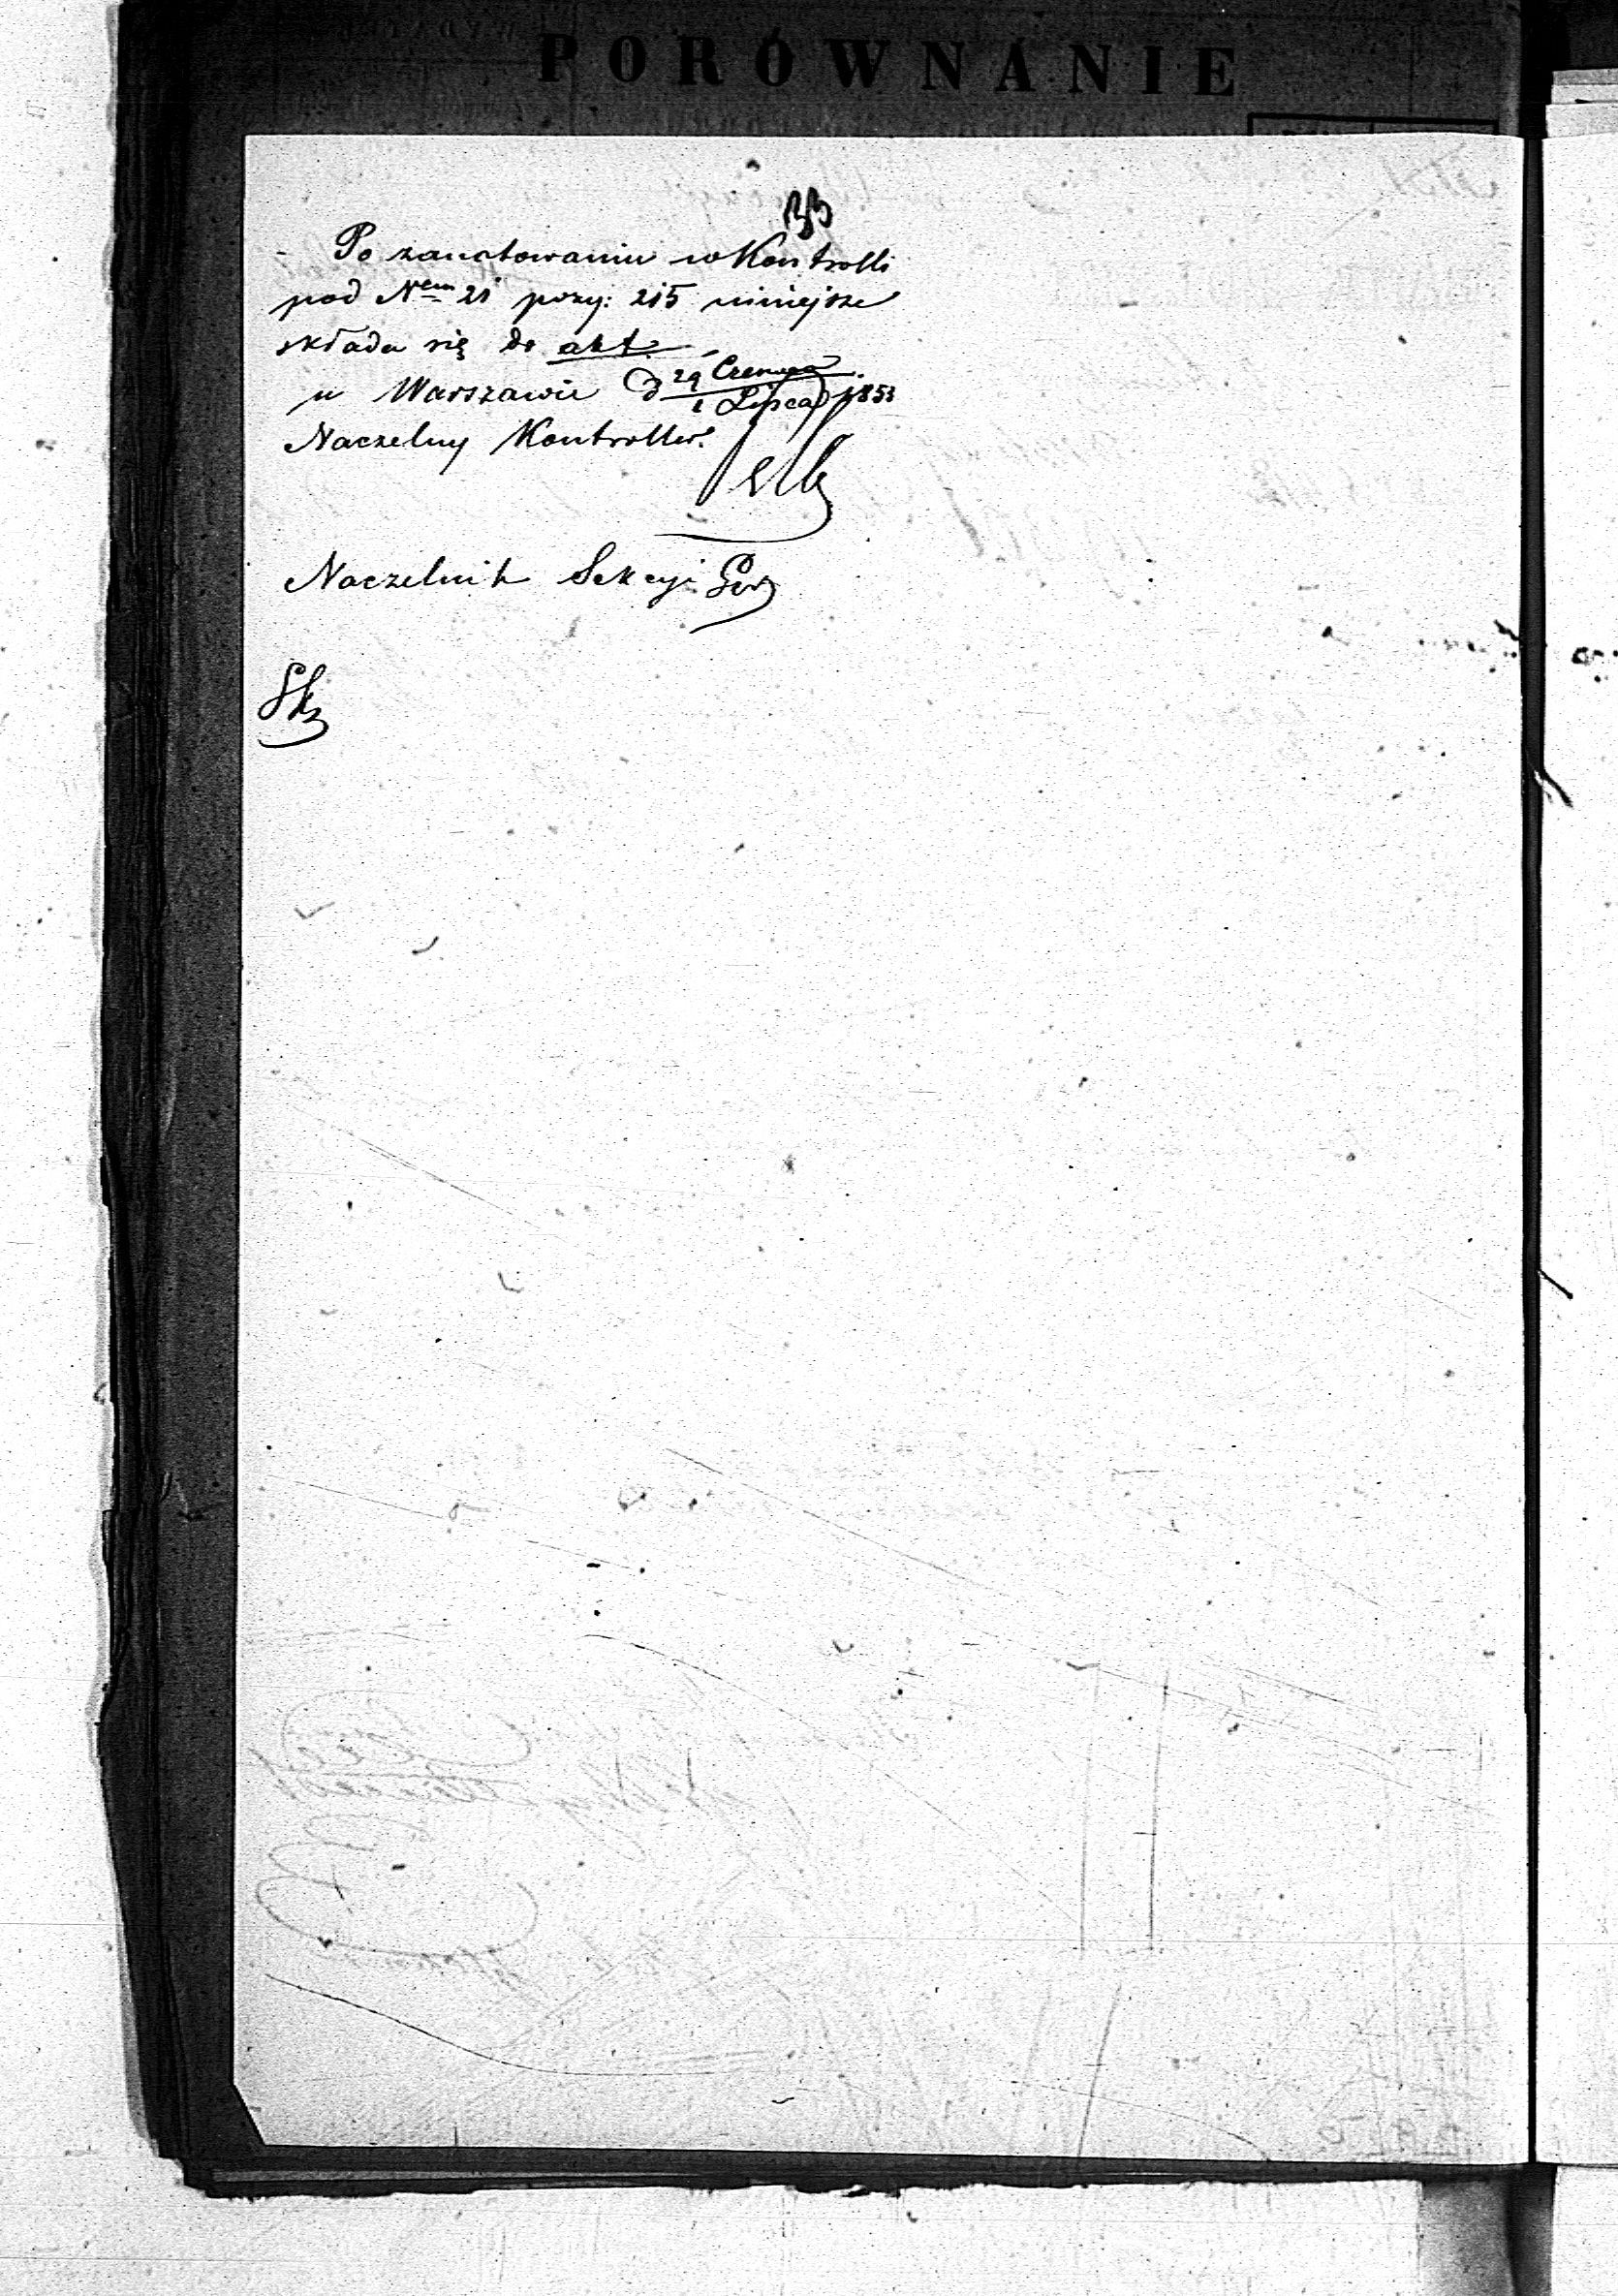 PORÓWNANIE
Po zanotowaniu w Kontrolli
pod Nem 21 pozy: 215 niniejsze
składa się do akt
w Warszawie d 29 Czerwca
Lipca 1853
Naczelny Kontroller.
Naczelnik Sekcyi